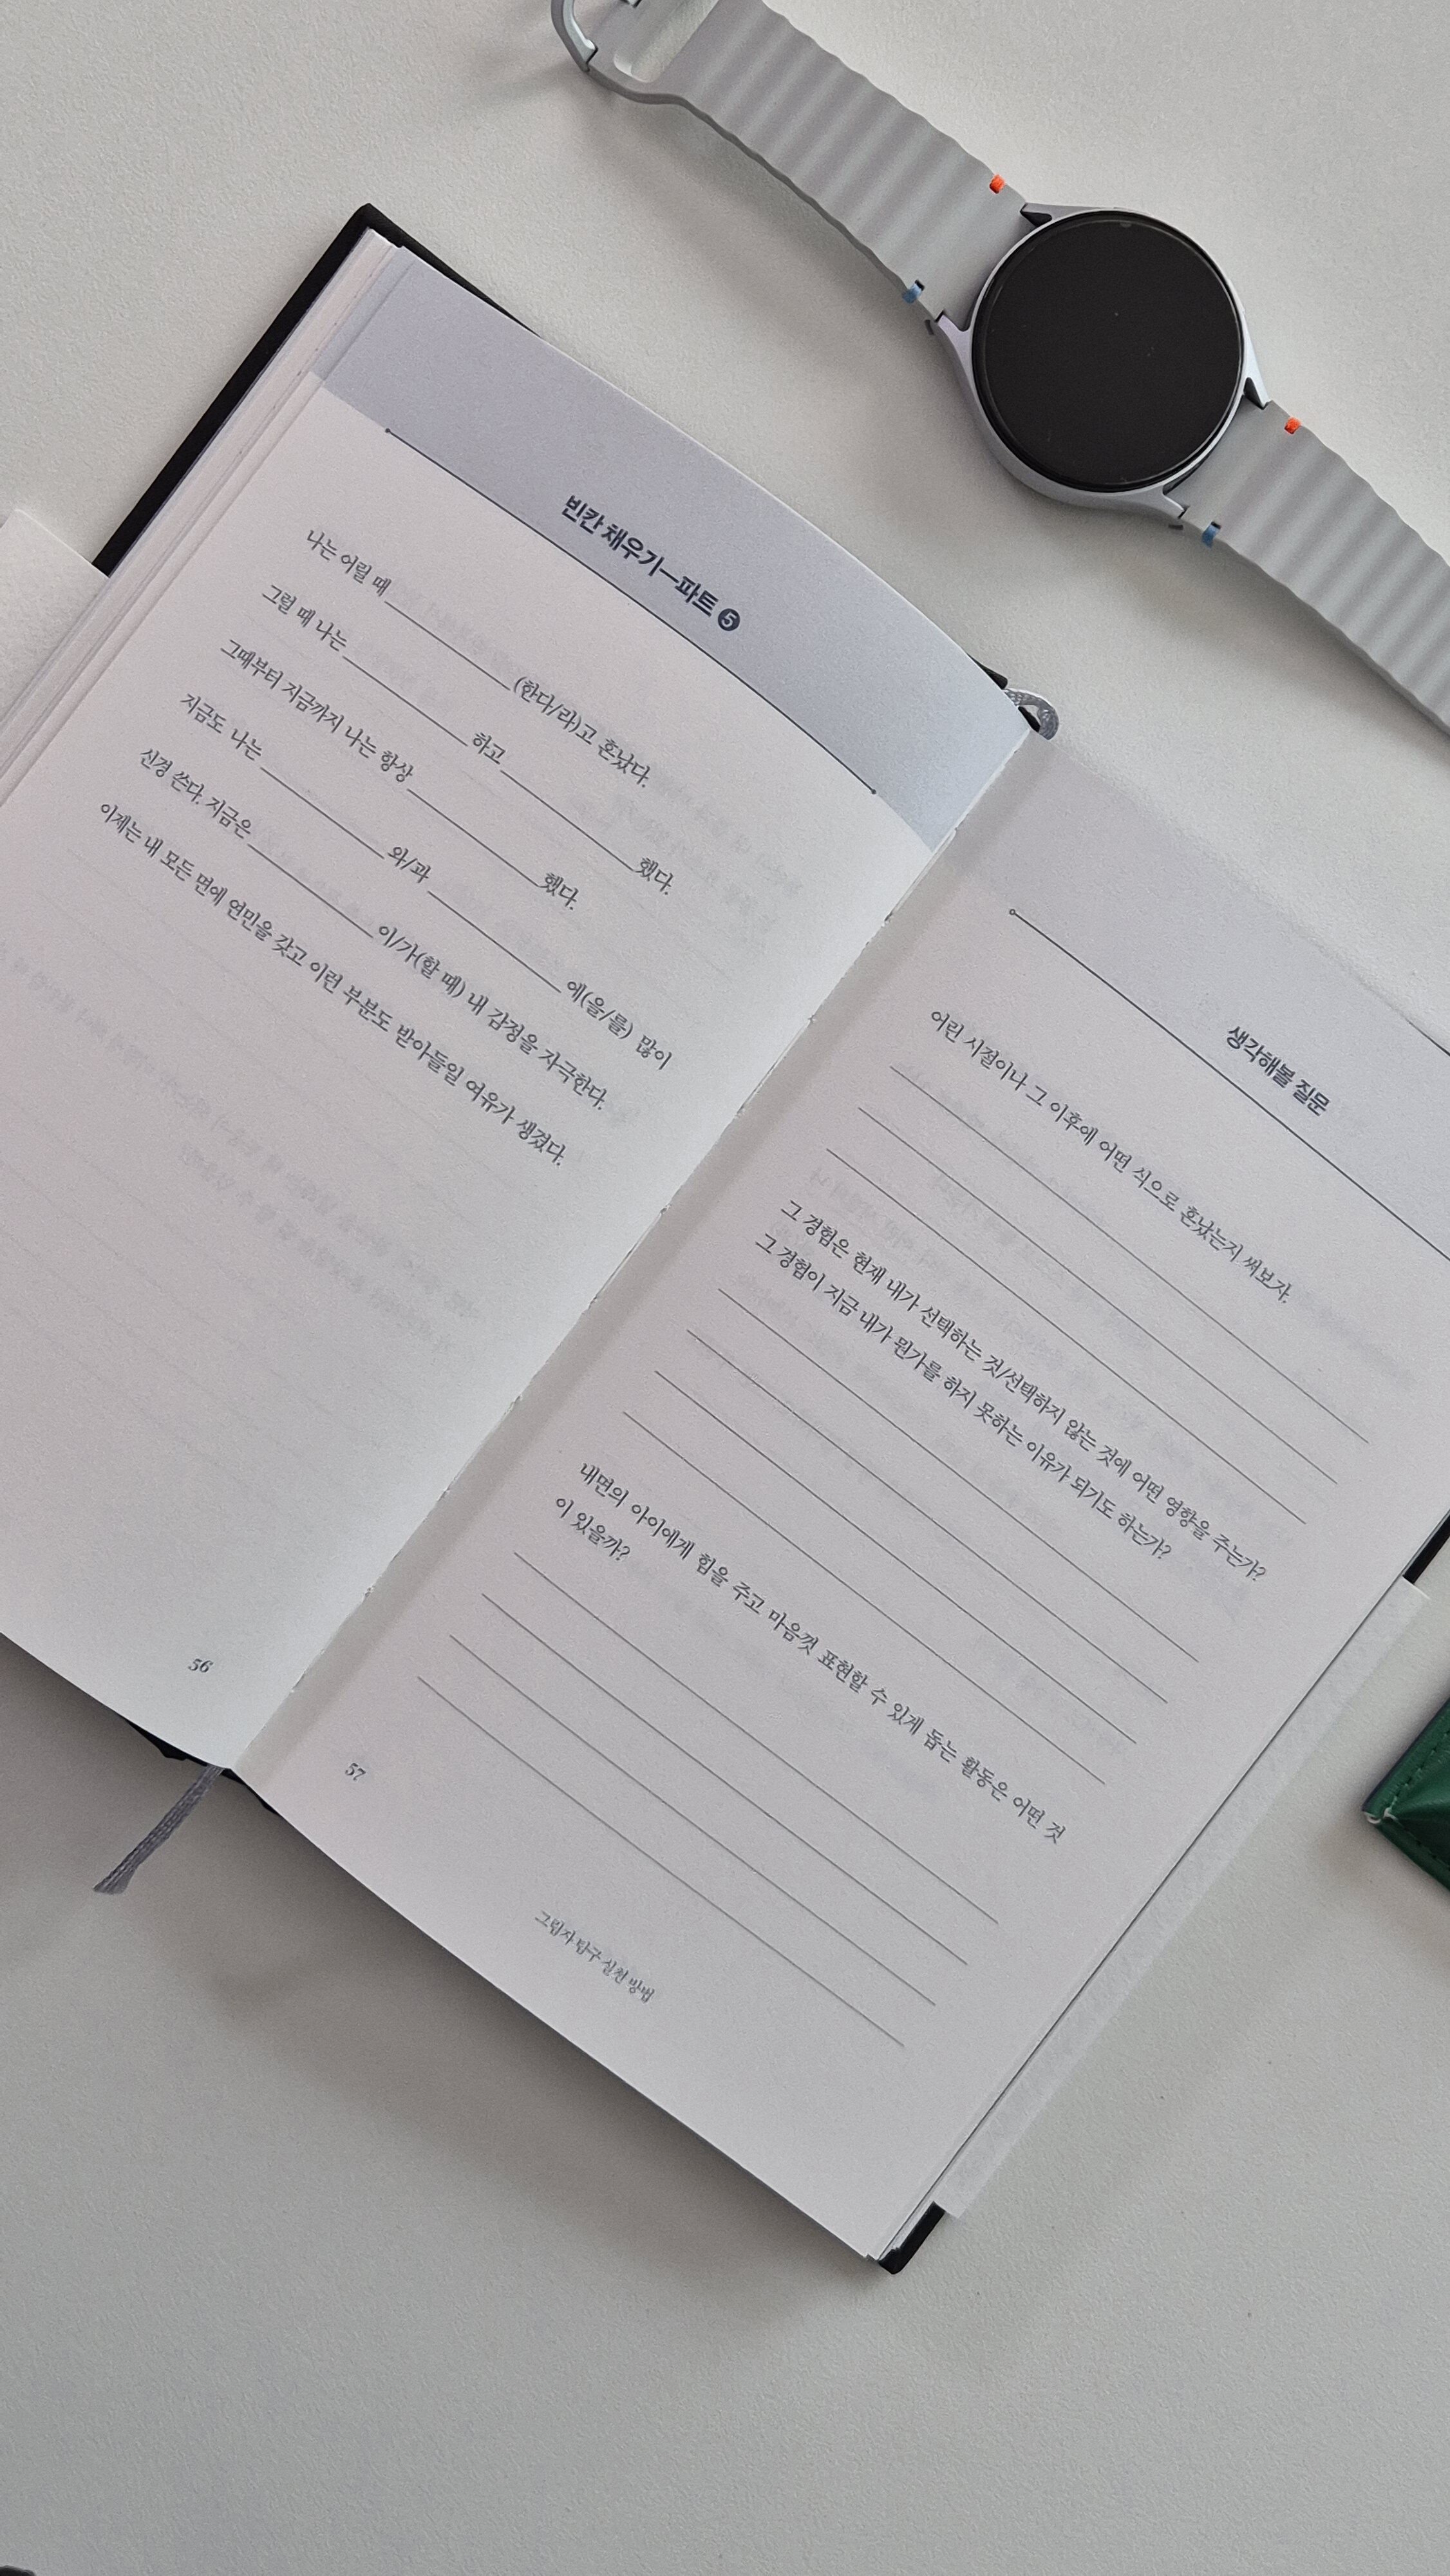 빈칸 채우기—파트 ❺
나는 어릴 때 ____________ (한다/라)고 혼났다.
그럴 때 나는 ____________ 하고 ____________ 했다.
그때부터 지금까지 나는 항상 ____________ 했다.
지금도 나는 ____________ 와/과 ____________ 에(을/를) 많이
신경 쓴다. 지금은 ____________ 이/가(할 때) 내 감정을 자극한다.
이제는 내 모든 면에 연민을 갖고 이런 부분도 받아들일 여유가 생겼다.
56
생각해볼 질문
어린 시절이나 그 이후에 어떤 식으로 혼났는지 써보자.
그 경험은 현재 내가 선택하는 것/선택하지 않는 것에 어떤 영향을 주는가?
그 경험이 지금 내가 뭔가를 하지 못하는 이유가 되기도 하는가?
내면의 아이에게 힘을 주고 마음껏 표현할 수 있게 돕는 활동은 어떤 것
이 있을까?
57
그림자 탐구 실천 방법